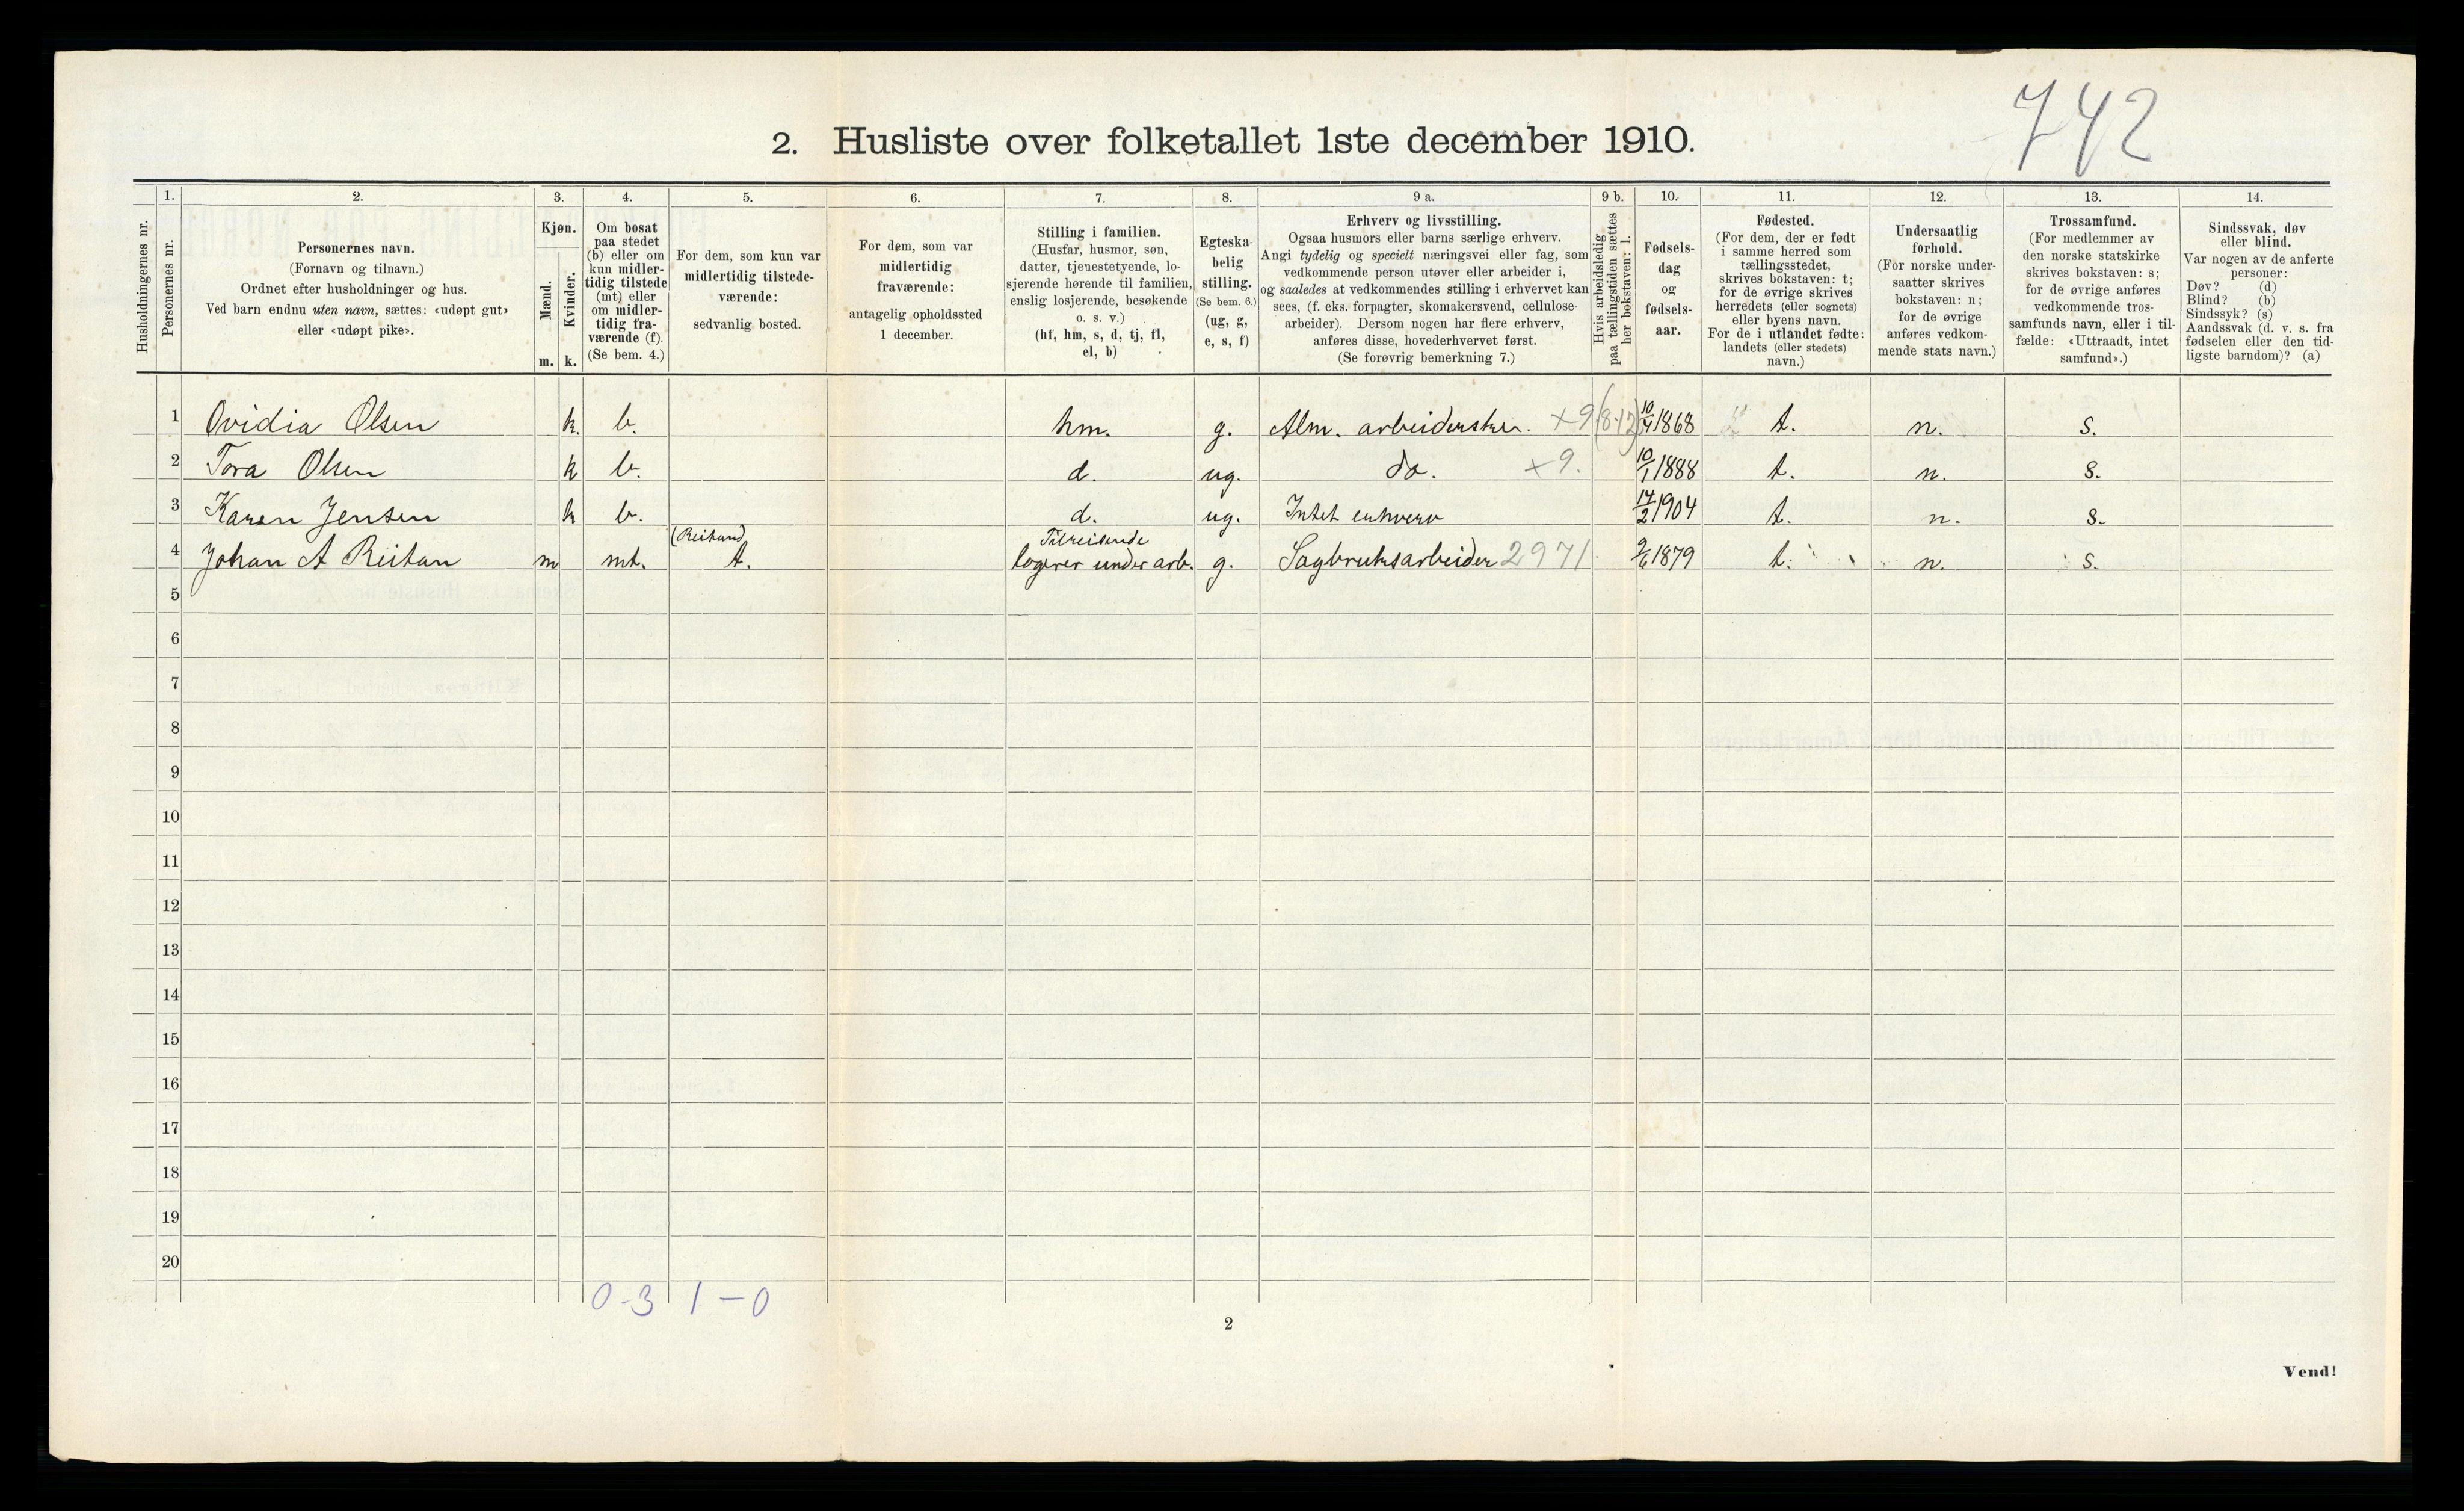 742
2. Husliste over folketallet 1ste december 1910.
Husholdningernes nr.
1.
Personernes nr.
2.
Personernes navn.
(Fornavn og tilnavn.)
Ordnet efter husholdninger og hus.
Ved barn endnu uten navn, sættes: «udøpt gut»
eller «udøpt pike».
3.
Kjøn.
Mænd.
Kvinder.
m. k.
4.
Om bosat
paa stedet
(b) eller om
kun midler-
tidig tilstede
(mt) eller
om midler-
tidig fra-
værende (f).
(Se bem. 4.)
5.
For dem, som kun var
midlertidig tilstede-
værende:
sedvanlig bosted.
6.
For dem, som var
midlertidig
fraværende:
antagelig opholdssted
1 december.
7.
Stilling i familien.
(Husfar, husmor, søn,
datter, tjenestetyende, lo-
sjerende hørende til familien,
enslig losjerende, besøkende
o. s. v.)
(hf, hm, s, d, tj, fl,
el, b)
8.
Egteska-
belig
stilling.
(Se bem. 6.)
(ug, g,
e, s, f)
9 a.
Erhverv og livsstilling.
Ogsaa husmors eller barns særlige erhverv.
Angi tydelig og specielt næringsvei eller fag, som
vedkommende person utøver eller arbeider i,
og saaledes at vedkommendes stilling i erhvervet kan
sees, (f. eks. forpagter, skomakersvend, cellulose-
arbeider). Dersom nogen har flere erhverv,
anføres disse, hovederhvervet først.
(Se forøvrig bemerkning 7.)
9 b.
Hvis arbeidsledig
paa tællingstiden sættes
her bokstaven: l.
10.
Fødsels-
dag
og
fødsels-
aar.
11.
Fødested.
(For dem, der er født
i samme herred som
tællingsstedet,
skrives bokstaven: t;
for de øvrige skrives
herredets (eller sognets)
eller byens navn.
For de i utlandet fødte:
landets (eller stedets)
navn.)
12.
Undersaatlig
forhold.
(For norske under-
saatter skrives
bokstaven: n;
for de øvrige
anføres vedkom-
mende stats navn.)
13.
Trossamfund.
(For medlemmer av
den norske statskirke
skrives bokstaven: s;
for de øvrige anføres
vedkommende tros-
samfunds navn, eller i til-
fælde: «Uttraadt, intet
samfund».)
14.
Sindssvak, døv
eller blind.
Var nogen av de anførte
personer:
Døv? (d)
Blind? (b)
Sindssyk? (s)
Aandssvak (d. v. s. fra
fødselen eller den tid-
ligste barndom)? (a)
1 Ovidia Olsen k. b. hm. g. Alm. arbeiderske. x9 (8-12) 10/4 1868 t. n. s.
2 Tora Olsen k b. d. ug. do. x9. 10/1 1888 t. n. s.
3 Karen Jensen k b. d. ug. Intet erhverv 14/2 1904 t. n. s.
(Reitan) Tilreisende
4 Johan A Reitan m mt. t. logerer under arb. g. Sagbruksarbeider 2971 9/6 1879 t. n. s.
5
6
7
8
9
10
11
12
13
14
15
16
17
18
19
20
0-3 1-0
2
Vend!